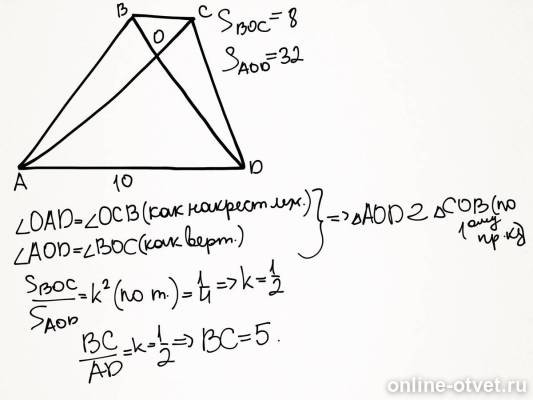 B C
O
S_BOC = 8
S_AOD = 32
A 10 D
∠OAD=∠OCB (как накрест леж.)
∠AOD=∠BOC (как верт.)
} => △AOD ∾ △COB (по 1ому пр.ку)
S_BOC/S_AOD = k² (по т.) = 1/4 => k = 1/2
BC/AD = k = 1/2 => BC = 5.
online-otvet.ru